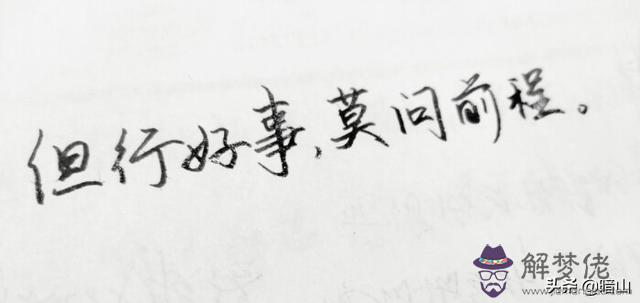 但行好事，莫问前程。
解梦佬
头条@暗山